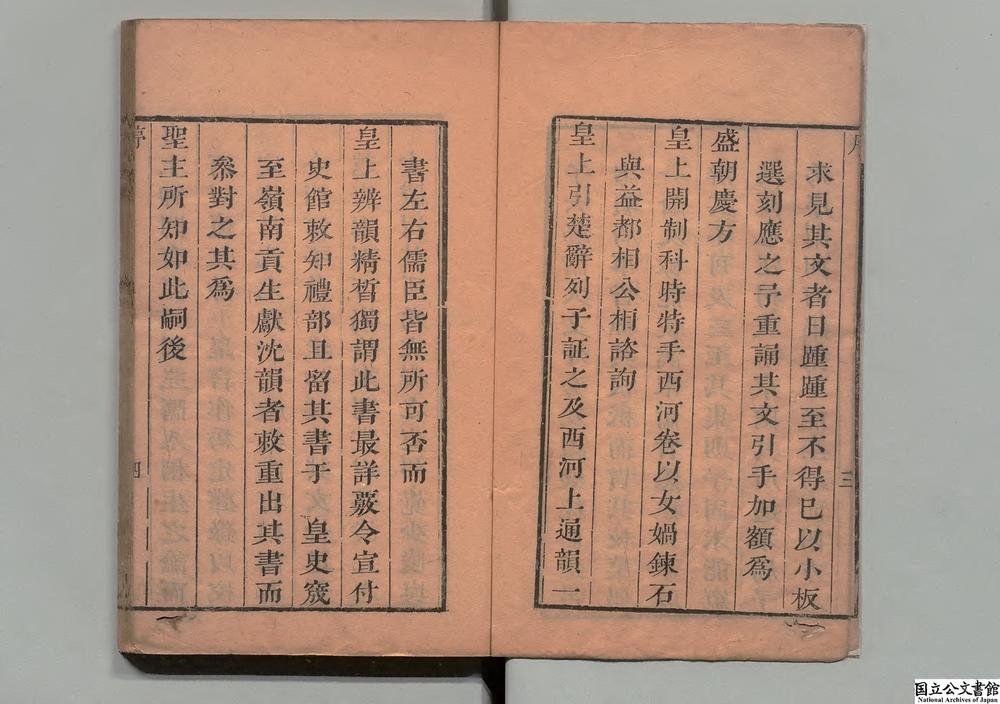 求見其文者日踵踵至不得已以小板
選刻應之予重誦其文引手加額爲
盛朝慶方
皇上開制科時特手西河卷以女媧鍊石
與益都相公相諮詢
皇上引楚辭列子証之及西河上通韻一
三
書左右儒臣皆無所可否而
皇上辨韻精晳獨謂此書最詳覈令宣付
史館敕知禮部且留其書于 皇史宬
至嶺南貢生獻沈韻者敕重出其書而
叅對之其爲
聖主所知如此嗣後
四
国立公文書館
National Archives of Japan